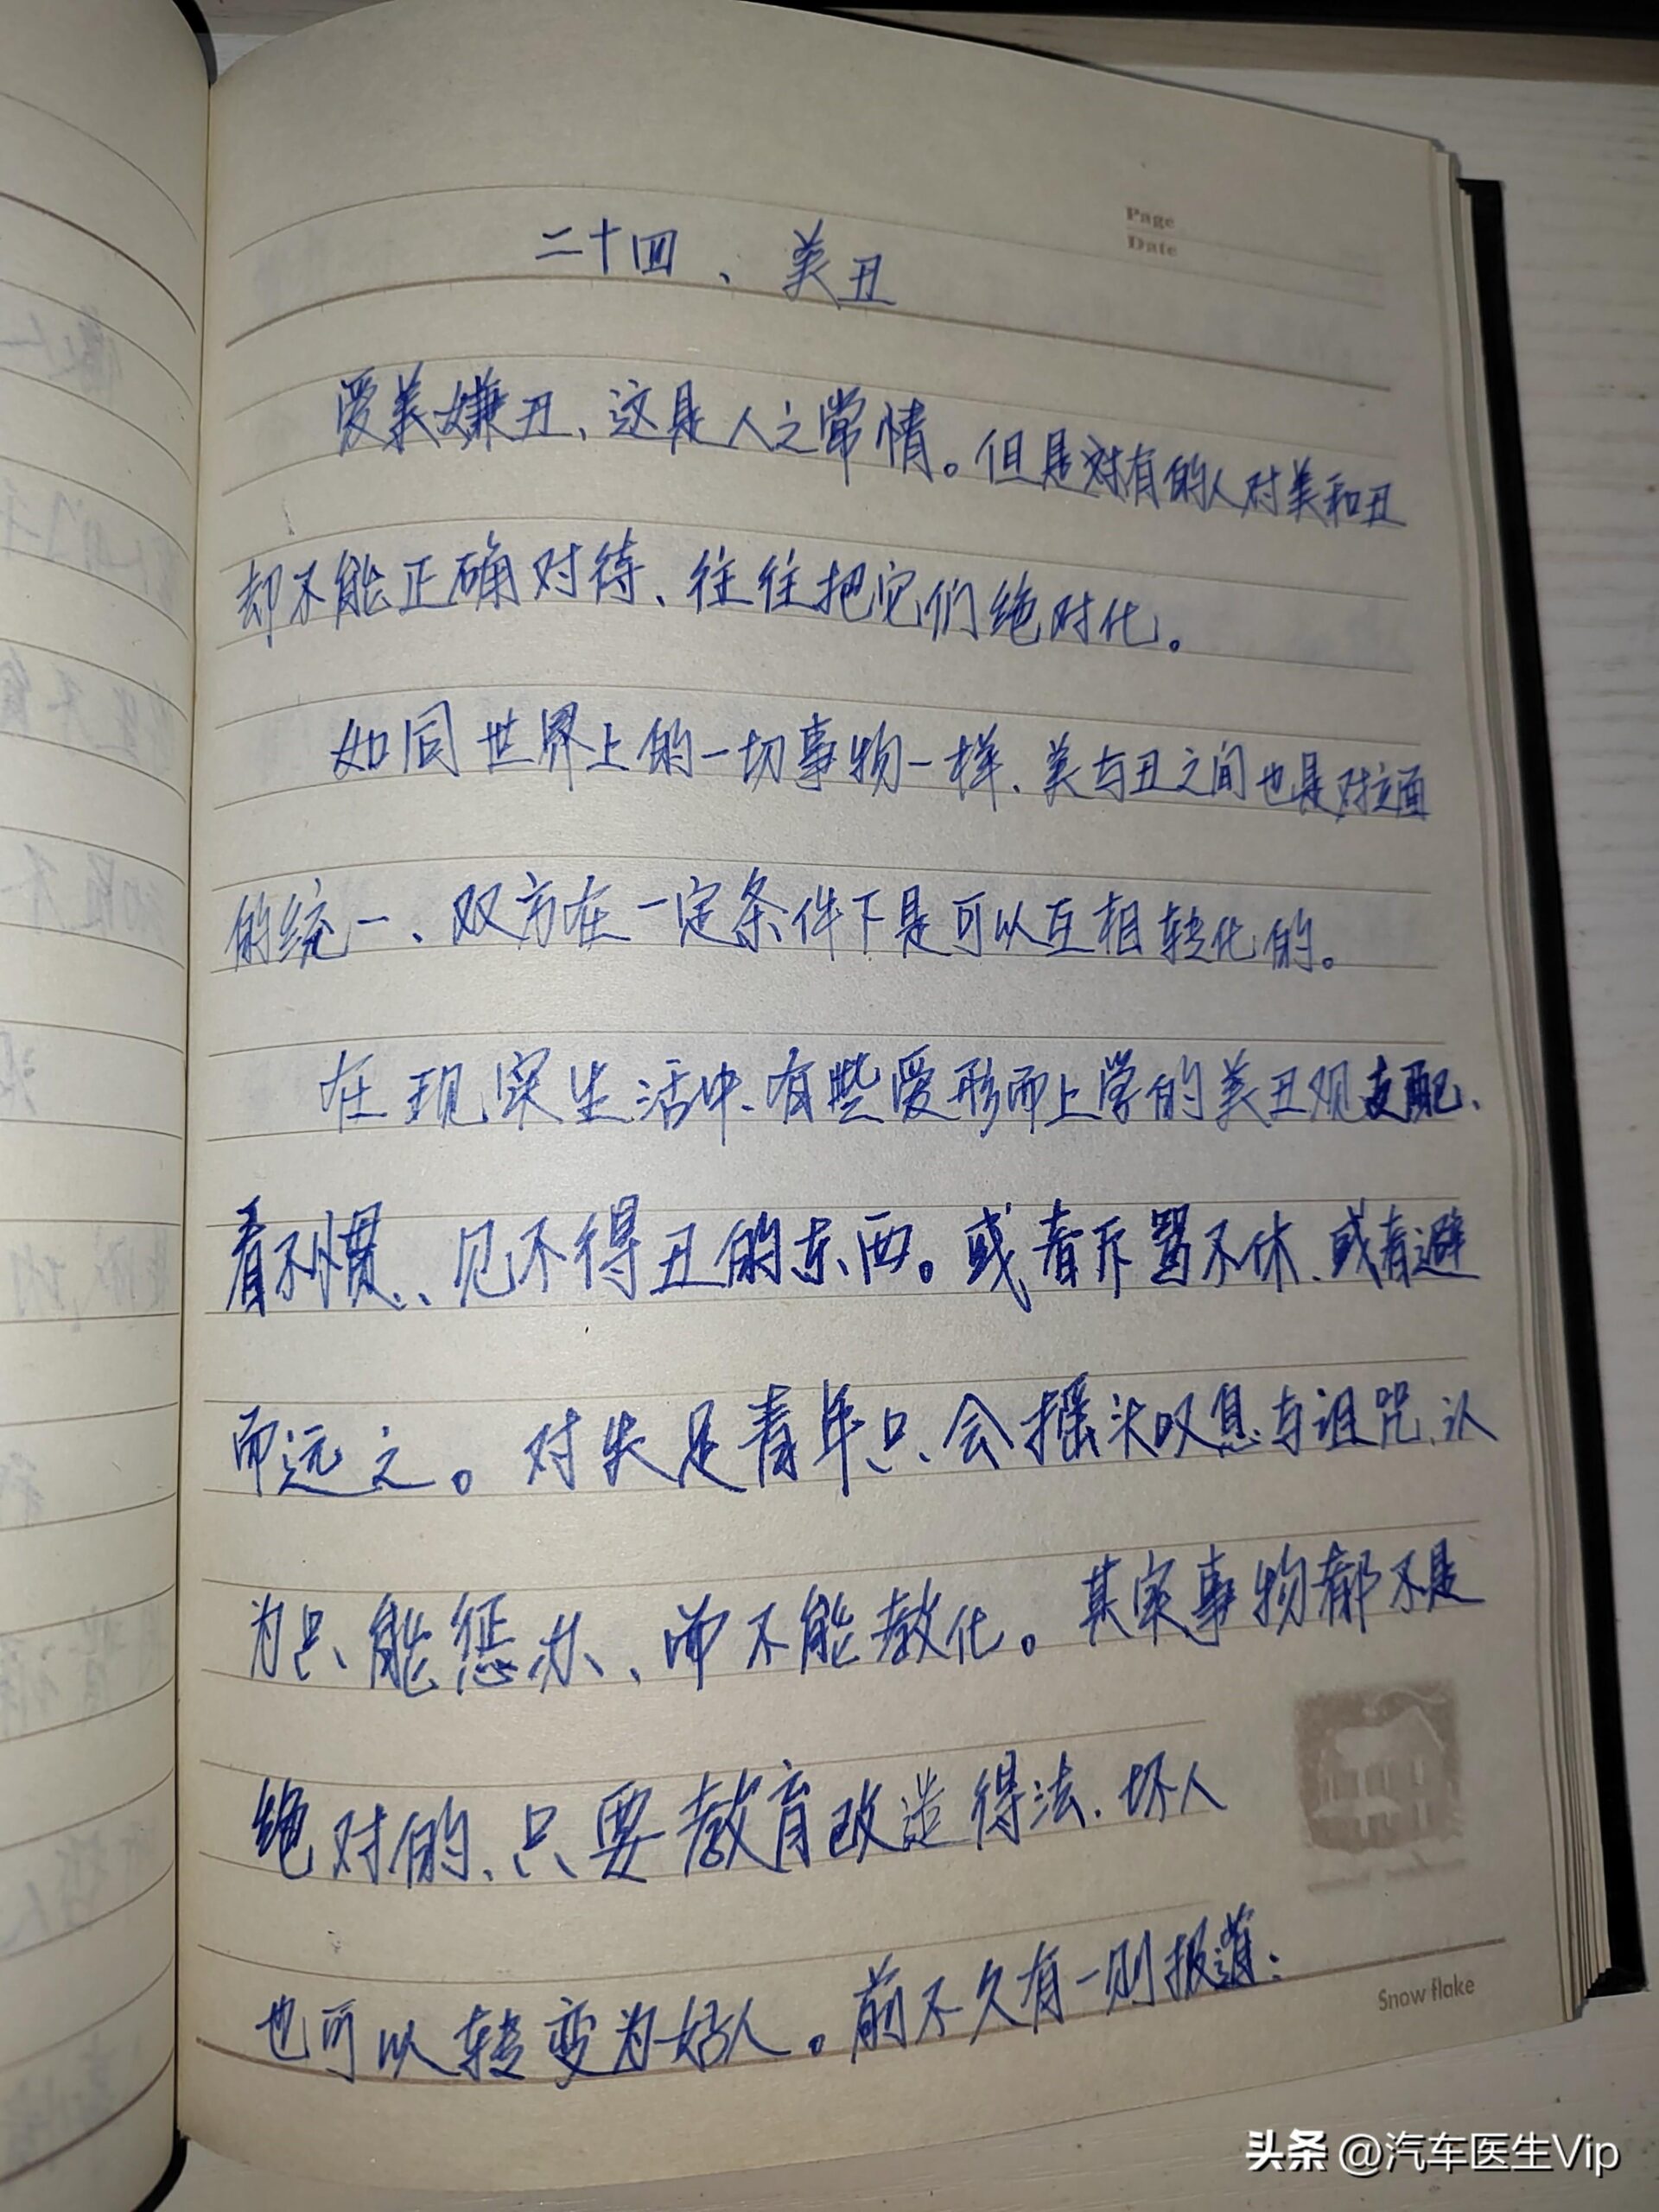 Page
Date
二十四、美丑
爱美嫌丑、这是人之常情。但是对有的人对美和丑
却不能正确对待、往往把它们绝对化。
如同世界上的一切事物一样、美与丑之间也是对立面
的统一、双方在一定条件下是可以互相转化的。
在现实生活中、有些爱形而上学的美丑观支配、
看不惯、、见不得丑的东西。或者斥骂不休、或者避
而远之。对失足青年只会摇头叹息与诅咒、认
为只能惩办、而不能教化。其实事物都不是
绝对的、只要教育改造得法、坏人
也可以转变为好人。前不久有一则报道：
Snow flake
头条 @汽车医生Vip